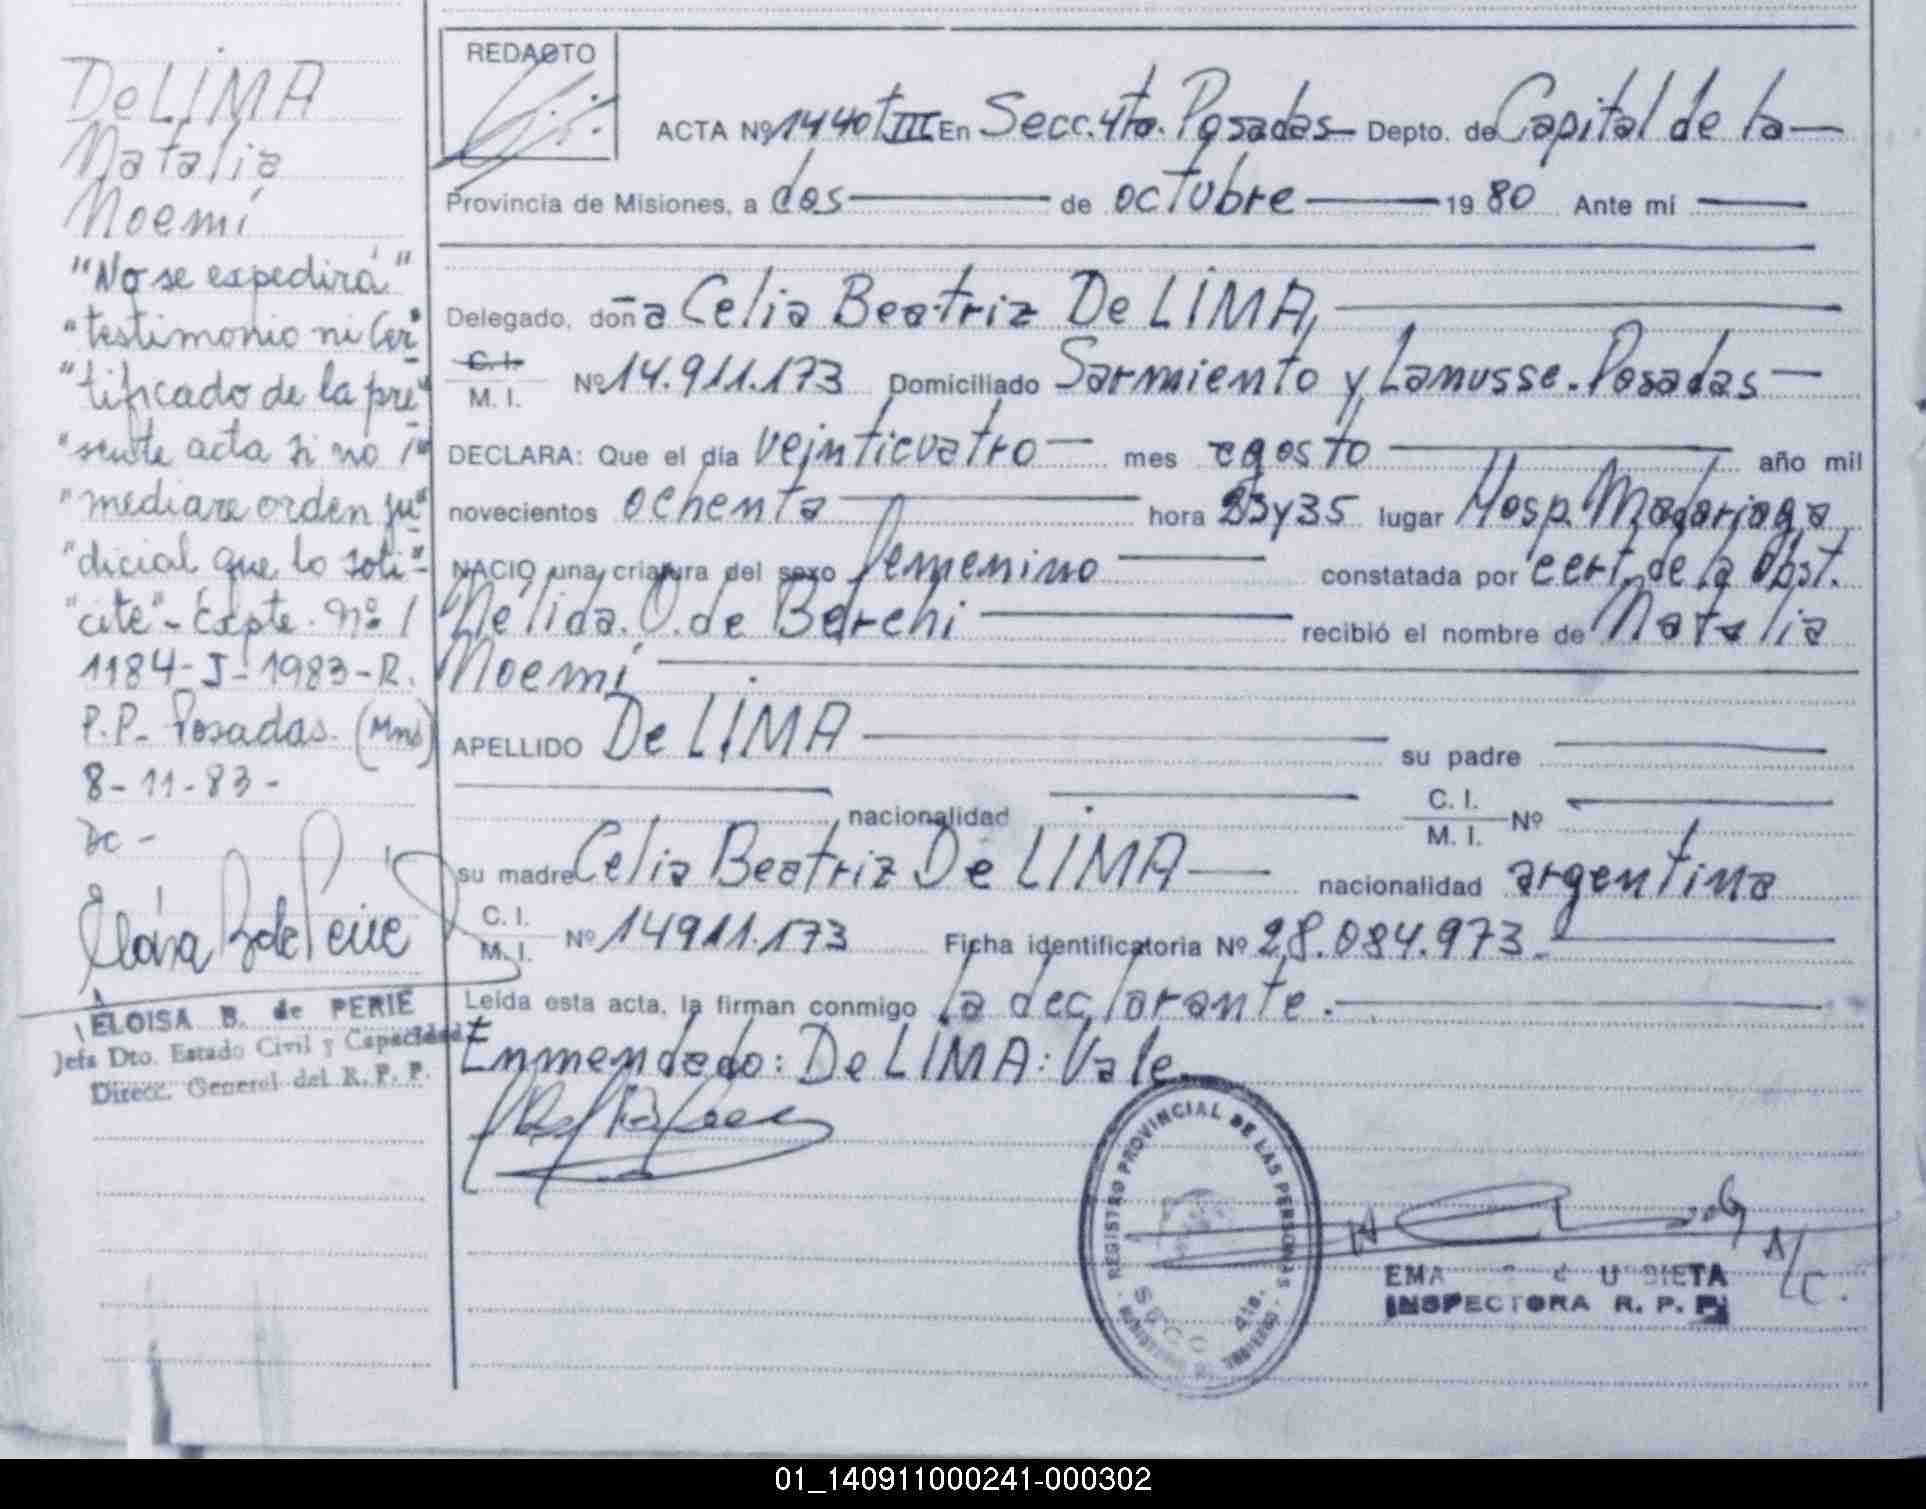 De LIMA
Natalia
Noemí
"No se expedirá"
"testimonio ni Cer"
"tificado de la pre"
"sente acta si no /"
"mediare orden ju"
"dicial que lo soli"-
"cite"- Expte. Nº /
1184-J-1983-R.
P.P- Posadas. (Mns)
8-11-83-
ELOISA B. de PERIE
Jefa Dto. Estado Civil y Capacidad
Direcc. General del R. P. P.
REDACTO
ACTA Nº 1440 T III En Secc. 4ta. Posadas Depto. de Capital de la
Provincia de Misiones, a dos de octubre 1980 Ante mí
Delegado, doña Celia Beatriz De LIMA,
C. I.
M. I. Nº 14.911.173 Domiciliado Sarmiento y Lanusse. Posadas
DECLARA: Que el día veinticuatro mes agosto año mil
novecientos ochenta hora 23y35 lugar Hosp. Madariaga
NACIO una criatura del sexo femenino constatada por cert. de la Obst.
Nélida. O. de Berchi recibió el nombre de Natalia
Noemí
APELLIDO De LIMA su padre
nacionalidad C. I.
M. I. Nº
su madre Celia Beatriz De LIMA nacionalidad argentina
C. I.
M. I. Nº 14911.173 Ficha identificatoria Nº 28.084.973.
Leída esta acta, la firman conmigo la declarante.
Enmendado: De LIMA: Vale.
REGISTRO PROVINCIAL DE LAS PERSONAS
SECC 4ta.
A/C.
INSPECTORA R. P. P.
01_140911000241-000302